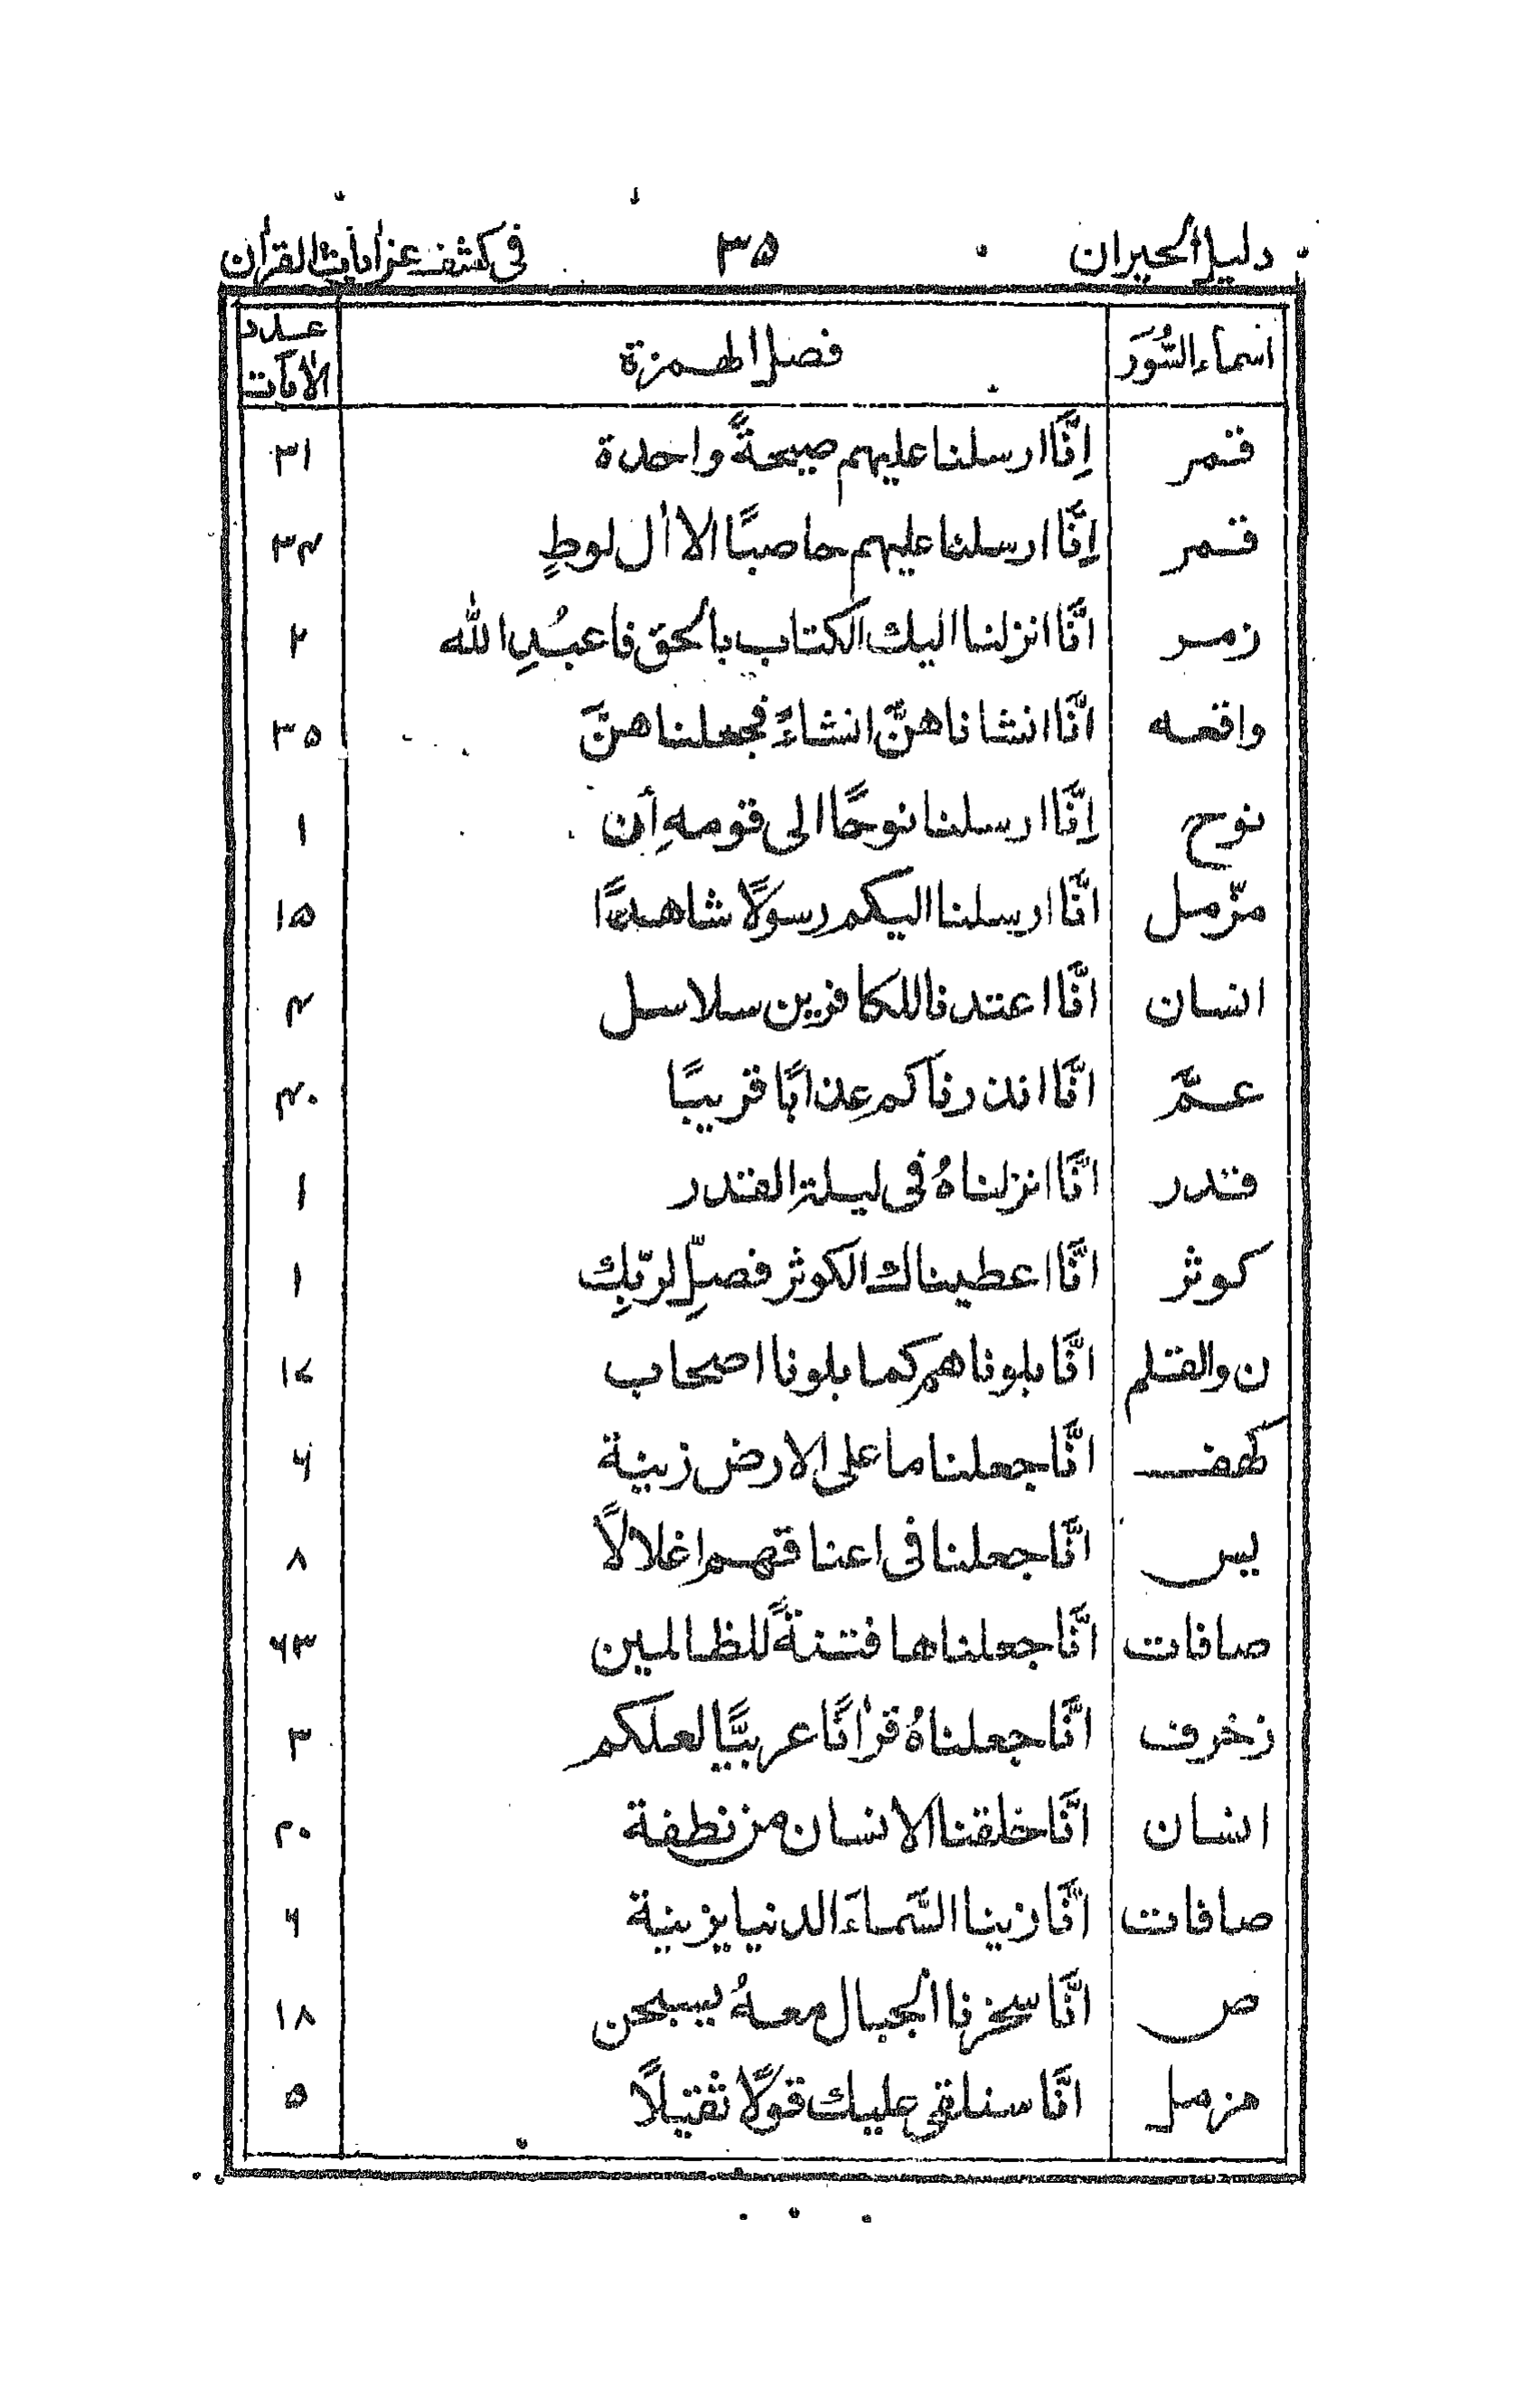 دليل الحيران ٣٥ في كشف عن اٰيات القراٰن
اسماء السُّوَر فصل الهمزة عدد الاٰيات
قمر اِنَّا ارسلنا عليهم صيحةً واحدة ٣١
قمر اِنَّا ارسلنا عليهم حاصبًا الا اٰل لوطٍ ٣٤
زمر انَّا انزلنا اليك الكتاب بالحق فاعبُدِ الله ٢
واقعه انَّا انشاناهنَّ انشاءً فجعلناهنَّ ٣٥
نوح اِنَّا ارسلنا نوحًا الى قومهِ أن ١
مزّمل انَّا ارسلنا اليكم رسولًا شاهدًا ١٥
انسان انَّا اعتدنا للكافرين سلاسل ٤
عمَّ انَّا انذرناكم عذابًا قريبًا ٤٠
قدر انَّا انزلناهُ في ليلة القدر ١
كوثر انَّا اعطيناك الكوثر فصلِّ لربّكِ ١
ن والقلم انَّا بلوناهم كما بلونا اصحاب ١٧
كهف انَّا جعلنا ما على الارض زينة ٦
يس انَّا جعلنا في اعناقهم اغلالًا ٨
صافات انَّا جعلناها فتنةً للظالمين ٦٣
زخرف انَّا جعلناهُ قراٰنًا عربيًّا لعلكم ٣
انسان انَّا خلقنا الانسان من نطفة ٢٠
صافات انَّا زينا السَّماءَ الدنيا بزينة ٦
ص انَّا سخرنا الجبال معهُ يسبحن ١٨
مزمل انَّا سنلقي عليك قولًا ثقيلًا ٥